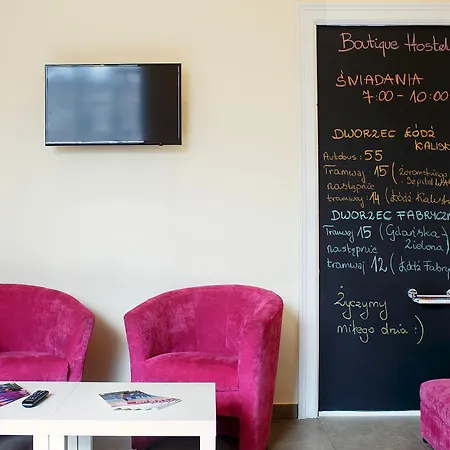 Boutique Hostel
ŚNIADANIA
7:00 - 10:00
DWORZEC ŁÓDŹ
KALISK
Autobus: 55
Tramwaj: 15 (Żeromskiego
następnie - Szpital WAM
tramwaj: 14 (Łódź Kalisk
DWORZEC FABRYCZN
Tramwaj 15 (Gdańska
następnie Zielona)
tramwaj 12 (Łódź Fabry
Życzymy
miłego dnia :)